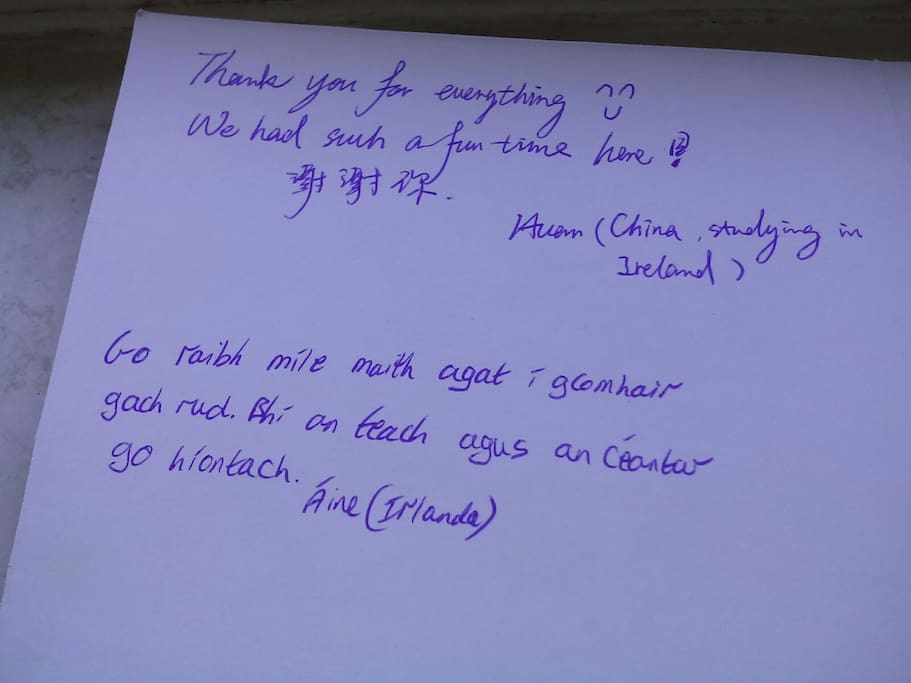 Thank you for everything
We had such a fun time here!
謝謝你.
(China, studying in
Ireland)
Go raibh míle maith agat í gcomhair
gach rud. Bhí an teach agus an Céantar
go híontach.
Áine (Irlanda)